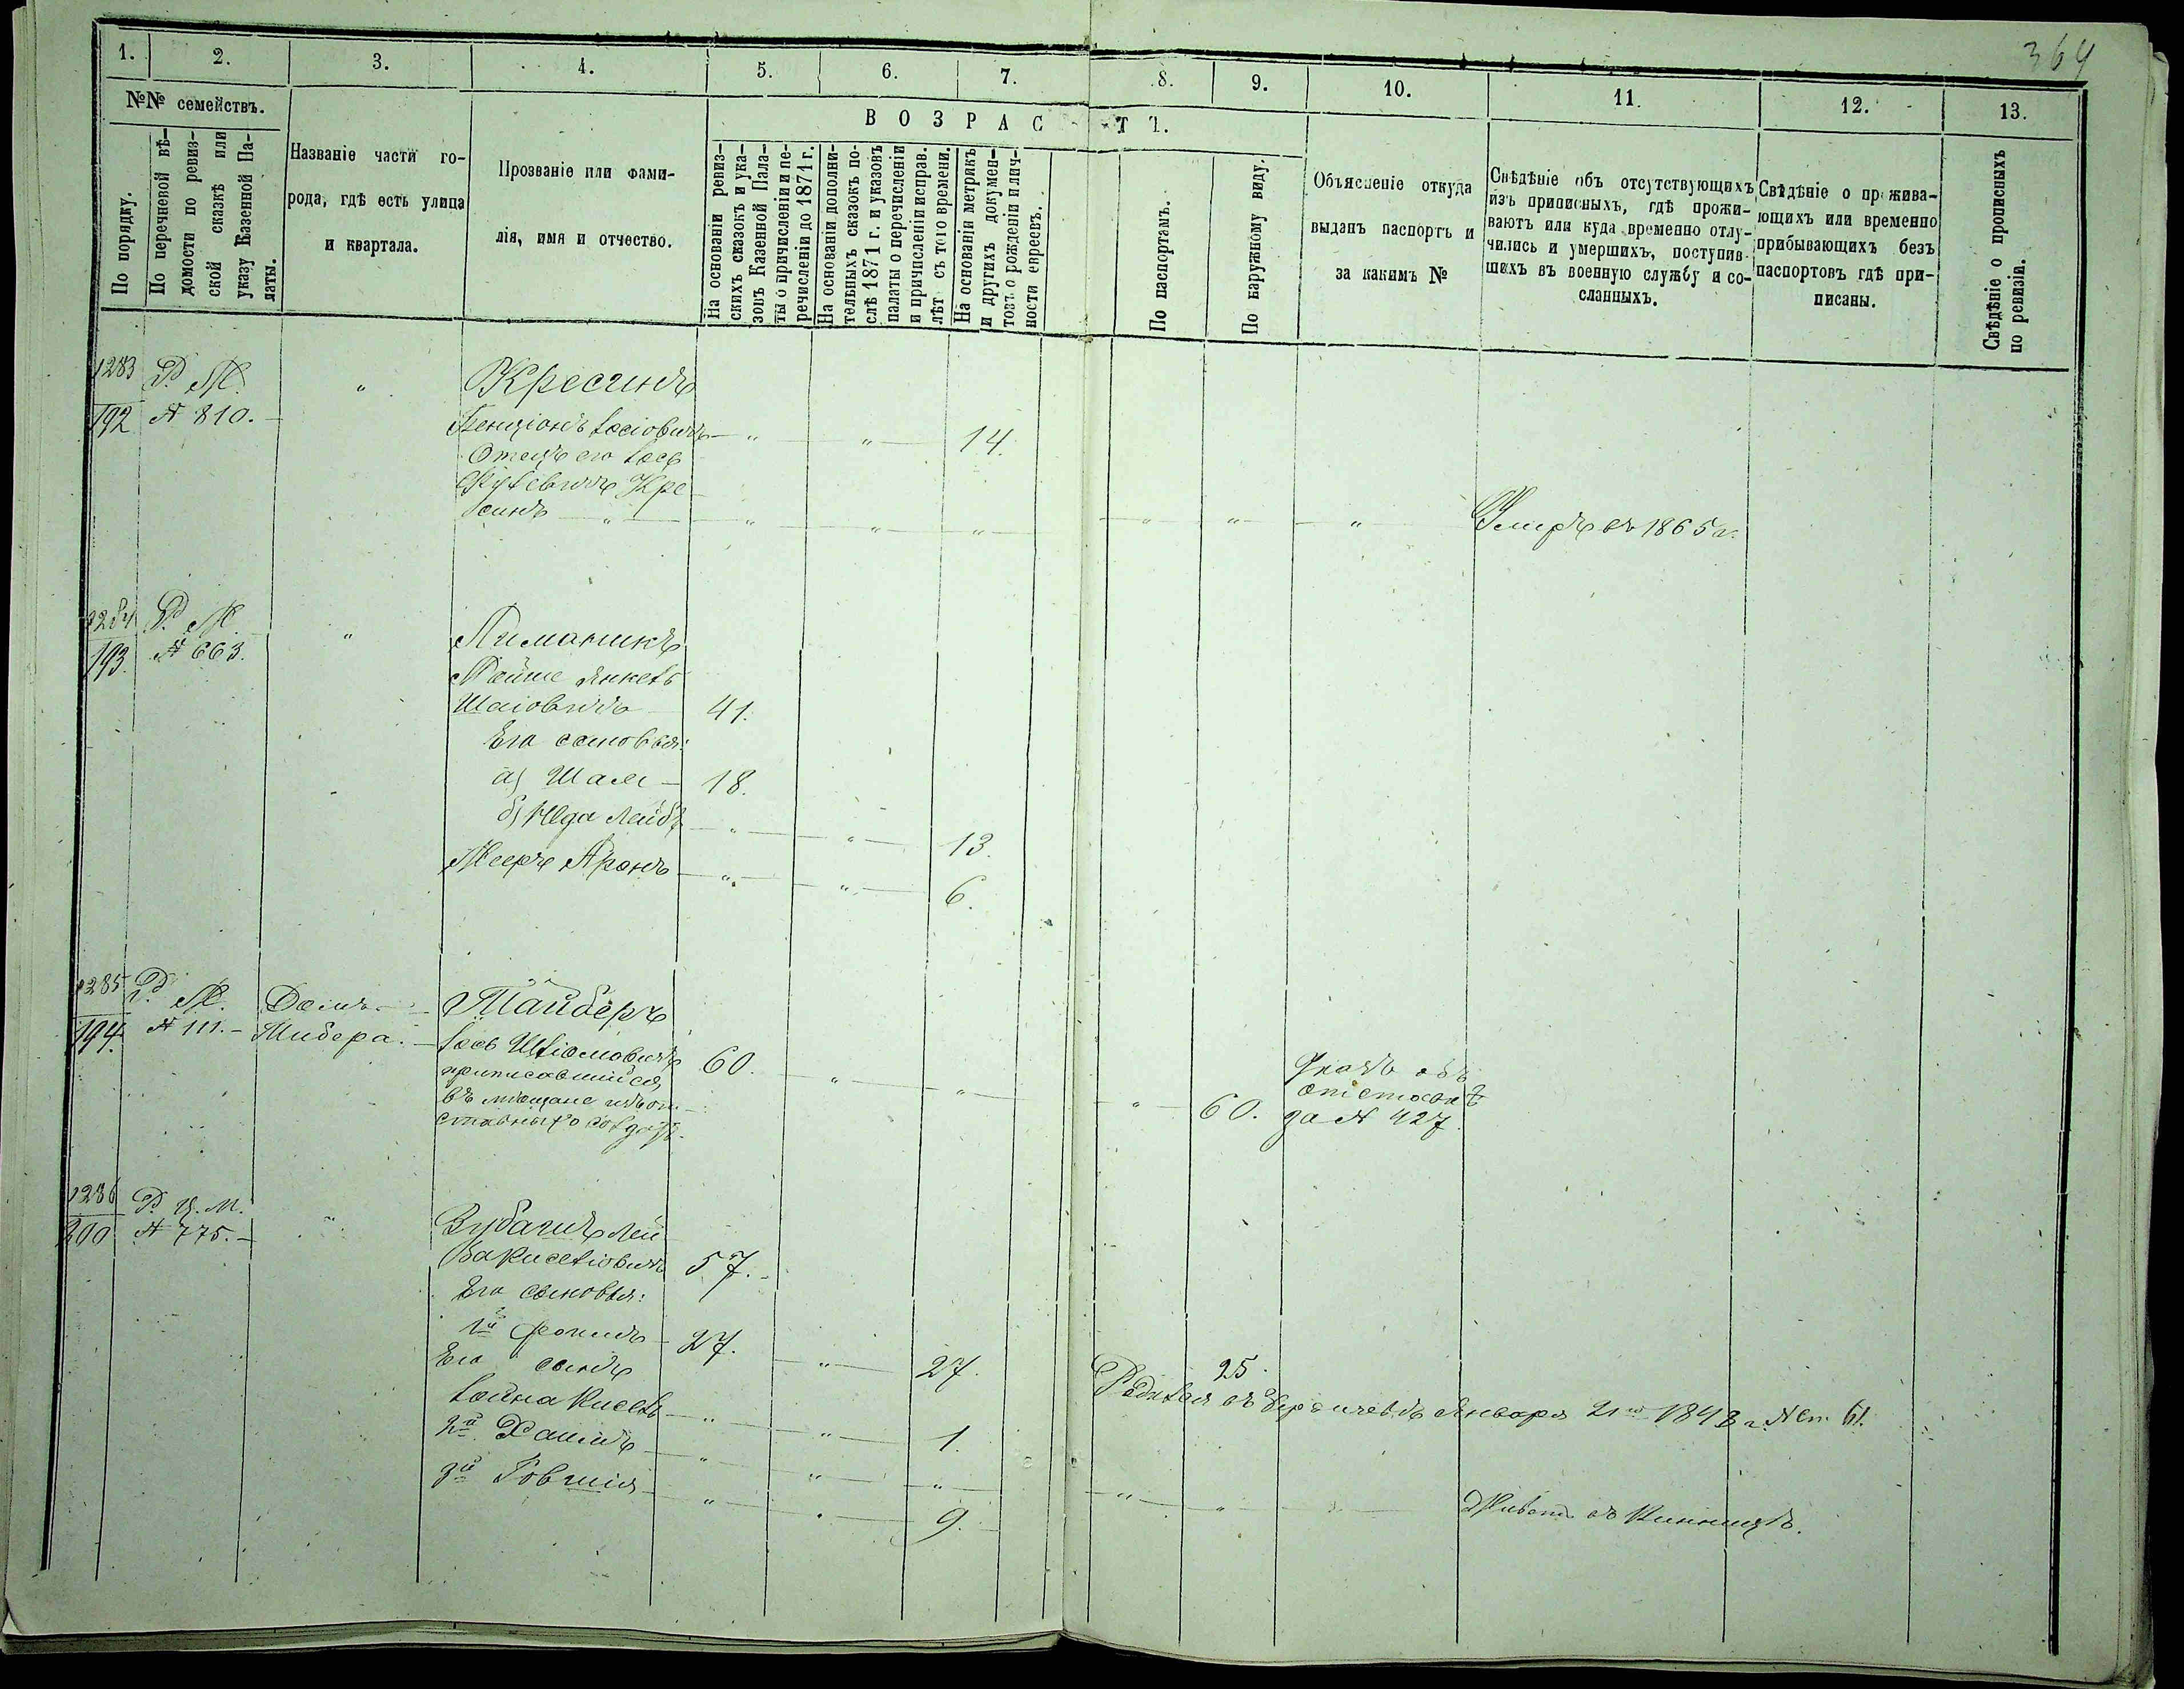 364
1. 2. 3. 4. 5. 6. 7. 8. 9. 10. 11. 12. 13.
№№ семействъ.
По порядку.
По перечневой вѣ-
домости по ревиз-
ской сказкѣ или
указу Казенной Па-
латы.
Названіе части го-
рода, гдѣ есть улица
и квартала.
Прозваніе или фами-
лія, имя и отчество.
ВОЗРАСТЪ.
На основаніи ревиз-
скихъ сказокъ и ука-
зовъ Казенной Пала-
ты о причисленіи и пе-
речисленіи до 1871 г.
На основаніи дополни-
тельныхъ сказокъ по-
слѣ 1871 г. и указовъ
палаты о перечисленіи
и причисленіи исправ.
лѣт съ того времени.
На основаніи метрикъ
и другихъ докумен-
товъ о рожденіи и лич-
ности евреевъ.
По паспортамъ.
По наружному виду.
Объясненіе откуда
выданъ паспортъ и
за какимъ №
Свѣдѣніе объ отсутствующихъ
изъ приписныхъ, гдѣ прожи-
ваютъ или куда временно отлу-
чились и умершихъ, поступив-
шихъ въ военную службу и со-
сланныхъ.
Свѣдѣніе о прожива-
ющихъ или временно
прибывающихъ безъ
паспортовъ гдѣ при-
писаны.
Свѣдѣніе о прописныхъ
по ревизіи.
1283 Р. М. " Кресинъ
192 № 810. —
Бенціонъ Іосіовичъ — " — " — 14.
Отецъ его Іось
Кре-
синъ — " — " — " — " — " — " — " Умеръ въ 1865 г.
1284 Р. М. " Лиманикъ
193. № 663.
Мойше Янкель
Шаіовичъ — 41.
Его сыновья:
а) Шая — 18.
б) Юда Лейбъ — " — " — 13.
Мееръ Аронъ — " — " — 6.
1285 Р. М. Домъ — Тайберъ
194. № 111. — Шибера. —
Іось Шліомовичъ 60. — " — " — " — 60.
приписавшійся
въ мѣщане изъ от-
ставныхъ солдатъ.
Указъ объ
отставкѣ
за № 427.
1286 Р. Ц. М. "
200 № 775. —
Зубачикъ Лей
ба Киселіовичъ 57. —
Его сыновья:
1й — 27. — " — 27. 25.
Его сынъ
Кисель — " — " — 1.
Родился въ Бердичевѣ Января 21го 1848 г. № ст. 61.
2й Хаимъ — " — " — " — " — " — Живетъ въ Винницѣ.
3й Товшія — " — " — 9. —